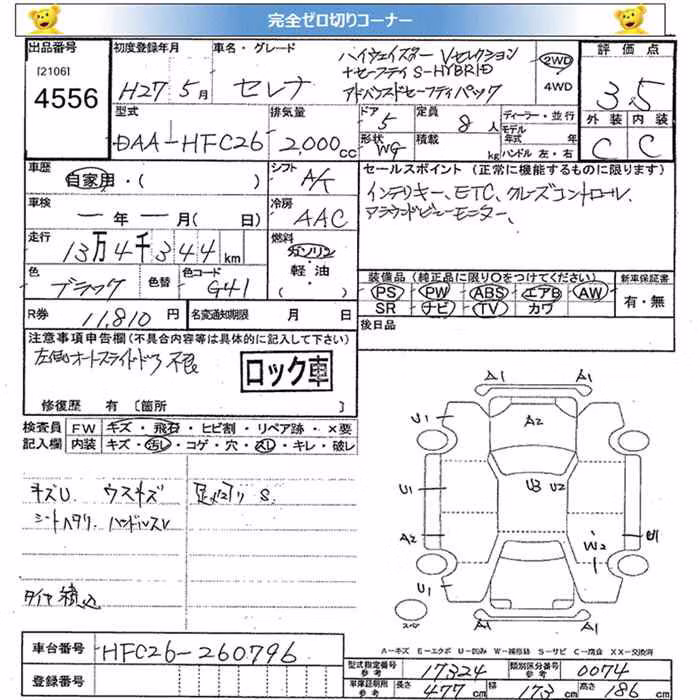 完全ゼロ切りコーナー
出品番号 初度登録年月 車名・グレード 評価点
[2106] ハイウェイスター Vセレクション 2WD
4556 H27年5月 セレナ +セーフティ S-HYBRID 4WD 3.5
アドバンスドセーフティパック
型式 排気量 ドア 定員 ディーラー・並行 外装 内装
DAA-HFC26 2,000cc 5 8人 モデル年式 年 C C
形状 WG 積載 kg ハンドル 左・右
車歴 シフト セールスポイント(正常に機能するものに限ります)
自家用・( ) A/T インテリキー、ETC、クルーズコントロール、
車検 冷房 アラウンドビューモニター、
ー年ー月( 日) AAC
走行 燃料
13万4千344km ガソリン
軽油 装備品(純正品に限り○をつけてください) 新車保証書
色 色替 色コード ・( ) PS PW ABS エアB AW 有・無
ブラック G41 SR ナビ TV カワ
R券 11,810円 名変通知期限 月 日 後日品
注意事項申告欄(不具合内容等は具体的に記入して下さい)
左側オートスライドドア不良
ロック車
修復歴 有〔箇所 〕
検査員 FW キズ・飛石・ヒビ割・リペア跡・×要
記入欄 内装 キズ・汚レ・コゲ・穴・スレ・キレ・破レ
キズU ウスキズ 足廻リS
シートヘタリ ハンドルスレ
タイヤ積込
A1 A1
U1 A2 U1
U1 U3 U2
A2 W2
U1
スペア A1 A1
A-キズ E-エクボ U-凹み W-補修跡 S-サビ C-腐食 XX-交換済
車台番号 HFC26-260796
型式指定番号 参考 17324 類別区分番号 参考 0074
登録番号 車庫証明用 参考 長さ 477cm 幅 173cm 高さ 186cm